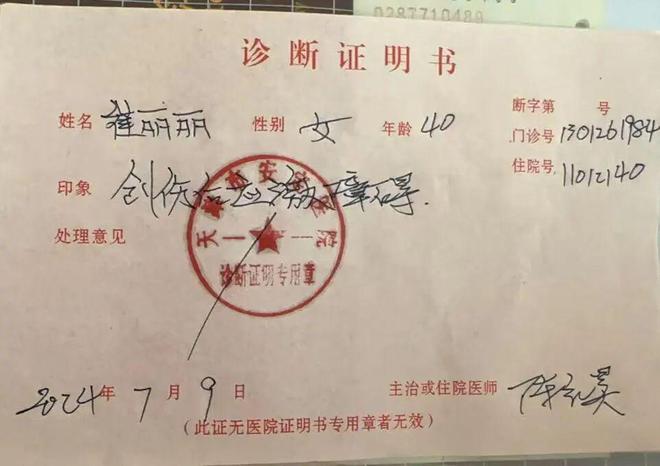 0287710489
诊断证明书
断字第 号
姓名 崔丽丽 性别 女 年龄 40 门诊号 1301261984
住院号 11012140
印象 创伤后应激障碍.
处理意见
天 安 医院
诊断证明专用章
2024年7月9日 主治或住院医师
(此证无医院证明书专用章者无效)